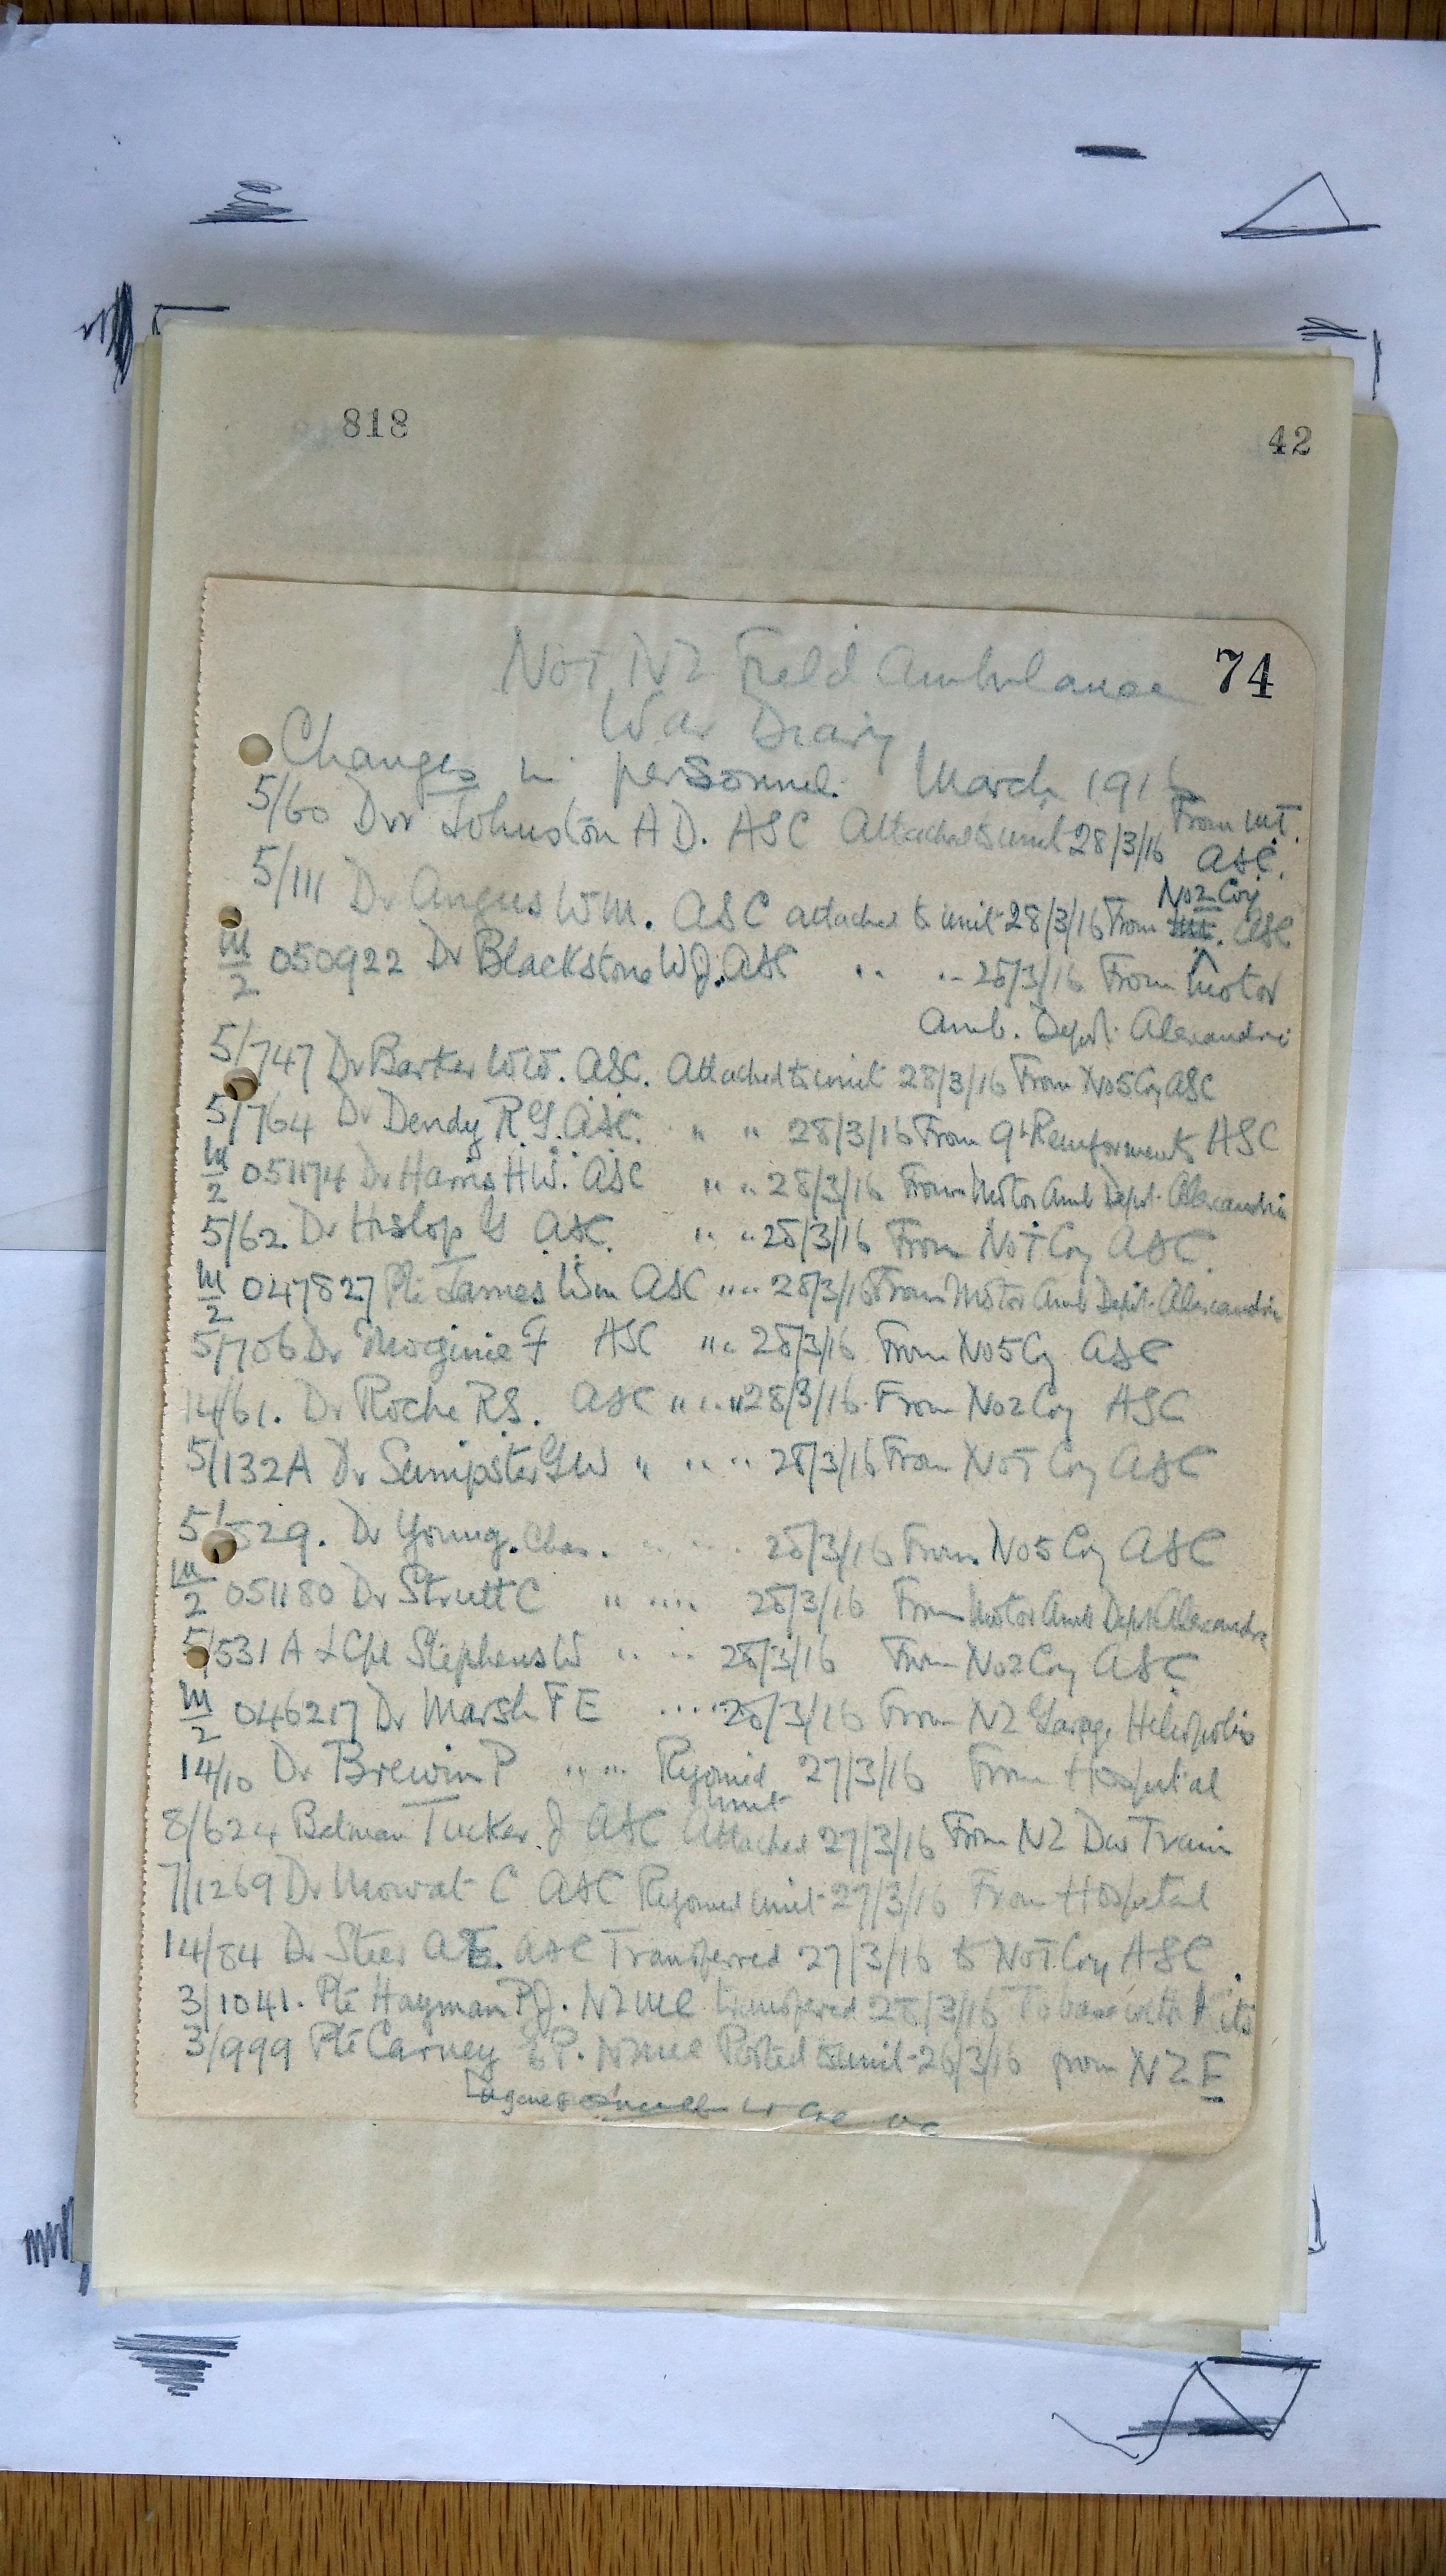 818
42
74
No 1 NZ Field Ambulance
War Diary
Changes in personnel. March 1916
5/60 Dvr Johnston A D. ASC Attached to unit 28/3/16 From M.T. ASC.
5/111 Dr Angus Wm. ASC attached to unit 28/3/16 From No 2 Coy ASC
M/2 050922 Dr Blackstone W J. ASC " " 28/3/16 From Motor
Amb. Depot. Alexandria
5/747 Dr Barker W W. ASC. Attached to unit 28/3/16 From No 5 Coy ASC
5/764 Dr Dendy R. G. ASC. " " 28/3/16 From 9th Reinforments ASC
M/2 051174 Dr Harris H W. ASC " " 28/3/16 From Motor Amb Depot. Alexandria
5/62. Dr Hislop G ASC. " " 28/3/16 From No 1 Coy ASC.
M/2 047827 Pte James Wm ASC " " 28/3/16 From Motor Amb Depot. Alexandria
5/706 Dr Moginie F ASC " " 28/3/16 From No 5 Cy ASC
14/61. Dr Roche R S. ASC " " " 28/3/16. From No 2 Coy ASC
5/132A Dr Sumpster G W " " " 28/3/16 From No 1 Coy ASC
5/529. Dr Young. Chas. " " " 28/3/16 From No 5 Coy ASC
M/2 051180 Dr Strutt C " " " 28/3/16 From Motor Amb Depot Alexandria
5/531 A L Cpl Stephens W " " " 28/3/16 From No 2 Coy ASC
M/2 046217 Dr Marsh F E " " 28/3/16 From NZ Garage Heliopolis
14/10 Dr Brewin P " " Rejoined unit 27/3/16 From Hospital
8/624 Batman Tucker. J ASC Attached 27/3/16 From NZ Div Train
7/1269 Dr Mowat C ASC Rejoined unit 27/3/16 From Hospital
14/84 Dr Steer A E. ASC Transferred 27/3/16 to No 1 Coy ASC.
3/1041. Pte Hayman P J. NZMC transferred 28/3/16 To base with kits
3/999 Pte Carney P. NZMC Posted to unit 26/3/16 from NZ E
Lt Col OC